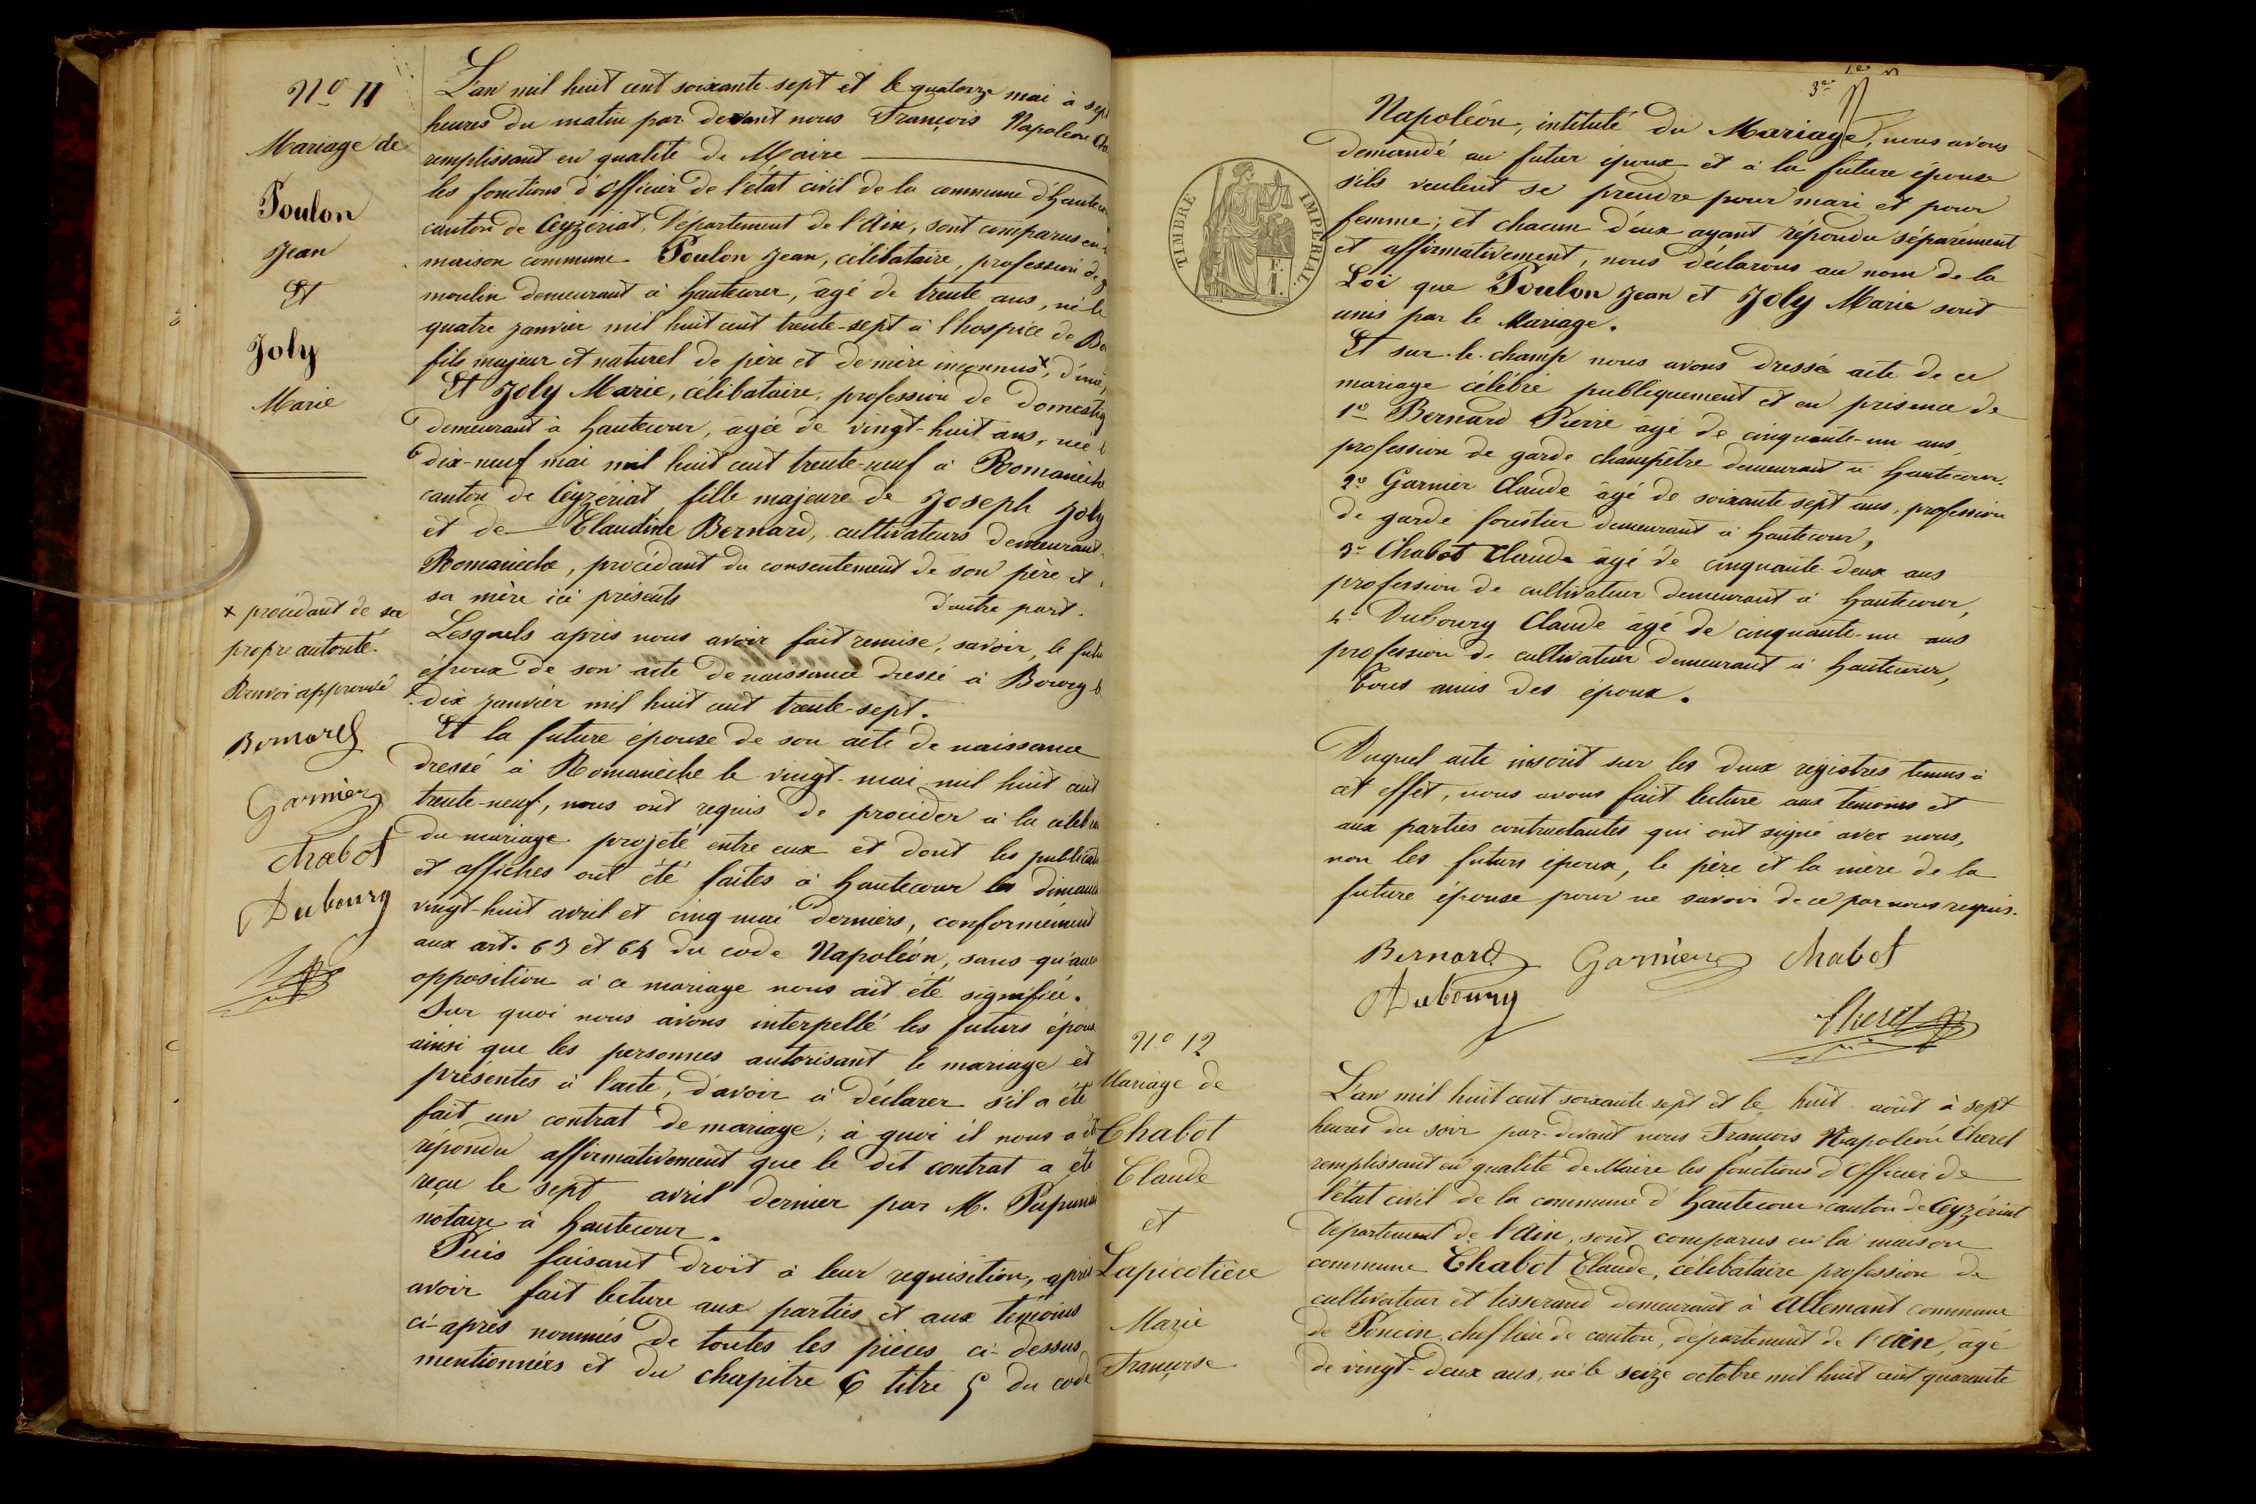 No 11
Mariage de
Poulon
Jean
Et
Joly
Marie
L'an mil huit cent soixante-sept et le quatorze mai à sept
heures du matin par devant nous François Napoléon Che
remplissant en qualité de Maire
les fonctions d'Officier de l'état civil de la commune d'Hautecou
canton de Ceyzériat, Département de l'Ain, sont comparus en
maison commune Poulon Jean, célibataire, profession de
moulin demeurant à Hautecour, âgé de trente ans, né le
quatre janvier mil huit cent trente-sept à l'hospice de Bo
fils majeur et naturel de père et de mère inconnus x, d'une
Et Joly Marie, célibataire, profession de Domestiq
demeurant à Hautecour, âgée de vingt-huit ans, née l
dix-neuf mai mil huit cent trente-neuf à Romanèche
canton de Ceyzériat fille majeure de Joseph Joly
et de Claudine Bernard, cultivateurs demeurant
Romanèche, procédant du consentement de son père et
sa mère ici présents d'autre part.
x procédant de sa
propre autorité.
Renvoi approuvé
Bernard
Garnier
Chabot
Dubourg
Lesquels après nous avoir fait remise, savoir, le futu
époux de son acte de naissance dressé à Bourg l
dix janvier mil huit cent trente-sept.
Et la future épouse de son acte de naissance
dressé à Romanèche le vingt-mai mil huit cent
trente-neuf, nous ont requis de procéder à la céléb
du mariage projeté entre eux et dont les publicati
et affiches ont été faites à Hautecour les dimanch
vingt-huit avril et cinq mai derniers, conformément
aux art. 63 et 64 du code Napoléon, sans qu'aucu
opposition à ce mariage nous ait été signifiée.
Sur quoi nous avons interpellé les futurs époux
ainsi que les personnes autorisant le mariage et
présentes à l'acte, d'avoir à déclarer s'il a été
fait un contrat de mariage; à quoi il nous a ét
répondu affirmativement que le dit contrat a été
reçu le sept avril dernier par M.
notaire à Hautecour.
Puis faisant droit à leur requisition, après
avoir fait lecture aux parties et aux témoins
ci-après nommés de toutes les pièces ci-dessus
mentionnées et du chapitre 6 titre 5 du code
3e
TIMBRE IMPÉRIAL
Napoléon, intitulé du Mariage, nous avons
demandé au futur époux et à la future épouse
s'ils veulent se prendre pour mari et pour
femme; et chacun d'eux ayant répondu séparément
et affirmativement, nous déclarons au nom de la
Loi que Poulon Jean et Joly Marie sont
unis par le Mariage.
Et sur-le-champ nous avons dressé acte de ce
mariage célébré publiquement et en présence de
1o Bernard Pierre âgé de cinquante-un ans,
profession de garde champêtre demeurant à Hautecour.
2o Garnier Claude âgé de soixante-sept ans, profession
de garde forestier demeurant à Hautecour,
3o Chabot Claude âgé de cinquante-deux ans
profession de cultivateur demeurant à Hautecour,
4o Dubourg Claude âgé de cinquante-un ans
profession de cultivateur demeurant à Hautecour,
Tous amis des époux.
Duquel acte inscrit sur les deux registres tenus à
cet effet, nous avons fait lecture aux témoins et
aux parties contractantes qui ont signé avec nous,
non les futurs époux, le père et la mère de la
future épouse pour ne savoir de ce par nous requis.
Bernard Garnier Chabot
Dubourg
Cherel
No 12
Mariage de
Chabot
Claude
et
Lapicotière
Marie
Françoise
L'an mil huit cent soixante-sept et le huit août à sept
heures du soir par-devant nous François Napoléon Cherel
remplissant en qualité de Maire les fonctions d'Officier de
l'état civil de la commune d'Hautecour canton de Ceyzériat
Département de l'Ain, sont comparus en la maison
commune Chabot Claude, célibataire profession de
cultivateur et tisserand demeurant à Allemant commune
de Poncin, chef lieu de canton, département de l'Ain, âgé
de vingt-deux ans, né le seize octobre mil huit cent quarante